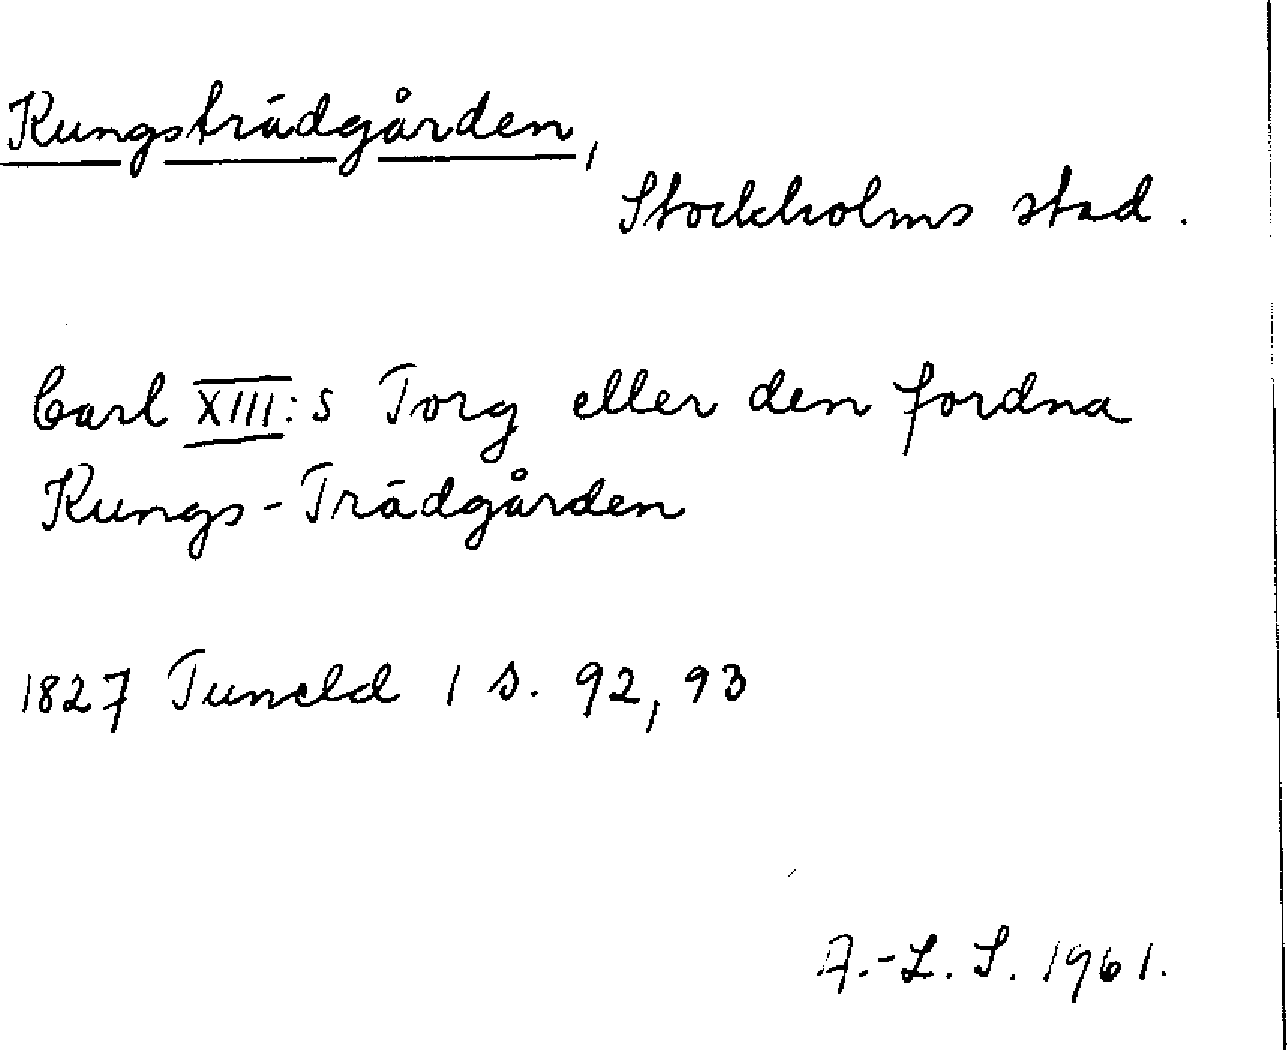 Kungsträdgården,
Stockholms stad.
Carl XIII:s Torg eller den fordna
Kungs-Trädgården
1827 Tuneld 1 s. 92, 93
A.-L. S. 1961.